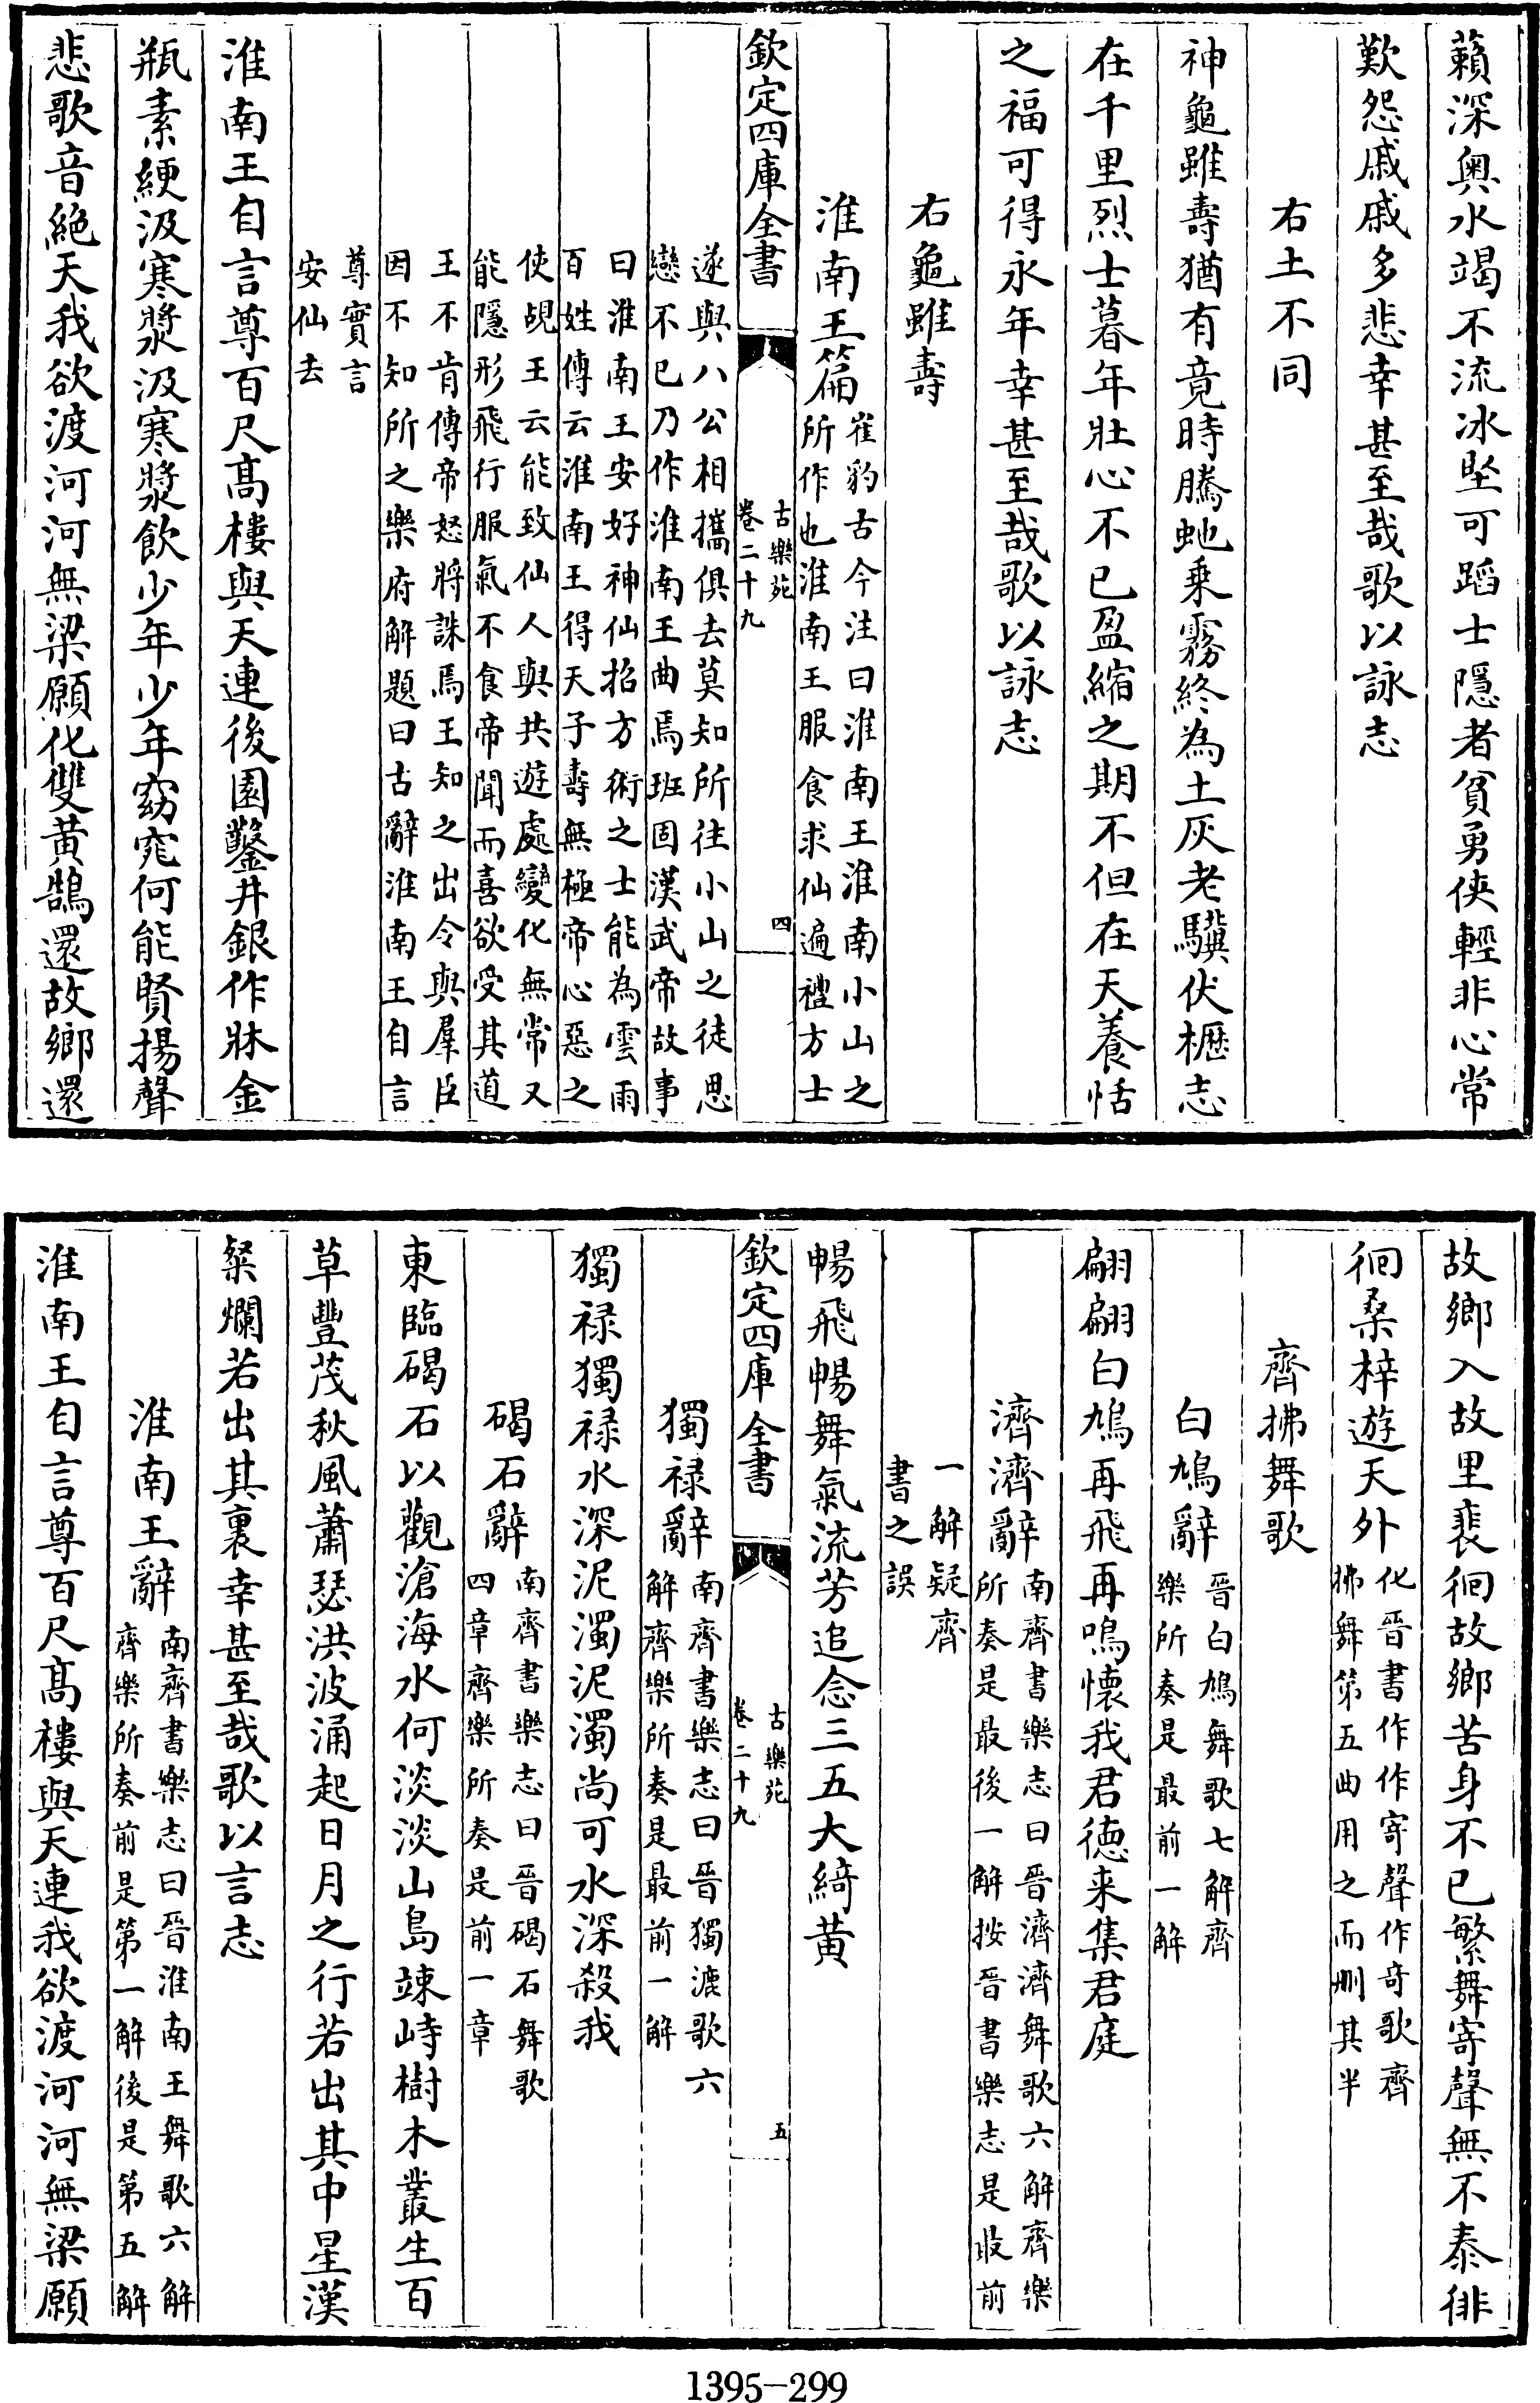 籟深奧水竭不流冰堅可蹈士隱者貧勇俠輕非心常
歎怨戚戚多悲幸甚至哉歌以詠志
右土不同
神龜雖壽猶有竟時騰虵乗霧終為土灰老驥伏櫪志
在千里烈士暮年壯心不已盈縮之期不但在天養恬
之福可得永年幸甚至哉歌以詠志
右龜雖壽
淮南王篇崔豹古今注曰淮南王淮南小山之
所作也淮南王服食求仙遍禮方士
欽定四庫全書
古樂苑
卷二十九
四
遂與八公相攜俱去莫知所往小山之徒思
戀不已乃作淮南王曲焉班固漢武帝故事
曰淮南王安好神仙招方術之士能為雲雨
百姓傳云淮南王得天子壽無極帝心惡之
使覘王云能致仙人與共遊處變化無常又
能隱形飛行服氣不食帝聞而喜欲受其道
王不肯傳帝怒將誅焉王知之出令與羣臣
因不知所之樂府解題曰古辭淮南王自言
尊實言
安仙去
淮南王自言尊百尺髙樓與天連後園鑿井銀作牀金
瓶素綆汲寒漿汲寒漿飲少年少年窈窕何能賢揚聲
悲歌音絶天我欲渡河河無梁願化雙黃鵠還故鄉還
故鄉入故里裴徊故鄉苦身不已繁舞寄聲無不泰徘
徊桑梓遊天外化晉書作作寄聲作奇歌齊
拂舞第五曲用之而刪其半
齊拂舞歌
白鳩辭晉白鳩舞歌七解齊
樂所奏是最前一解
翩翩白鳩再飛再鳴懐我君徳来集君庭
濟濟辭南齊書樂志曰晉濟濟舞歌六解齊樂
所奏是最後一解按晉書樂志是最前
一解疑齊
書之誤
暢飛暢舞氣流芳追念三五大綺黃
欽定四庫全書
古樂苑
卷二十九
五
獨祿辭南齊書樂志曰晉獨漉歌六
解齊樂所奏是最前一解
獨祿獨祿水深泥濁泥濁尚可水深殺我
碣石辭南齊書樂志曰晉碣石舞歌
四章齊樂所奏是前一章
東臨碣石以觀滄海水何淡淡山島竦峙樹木叢生百
草豐茂秋風蕭瑟洪波涌起日月之行若出其中星漢
粲爛若出其裏幸甚至哉歌以言志
淮南王辭南齊書樂志曰晉淮南王舞歌六解
齊樂所奏前是第一解後是第五解
淮南王自言尊百尺髙樓與天連我欲渡河河無梁願
1395-299